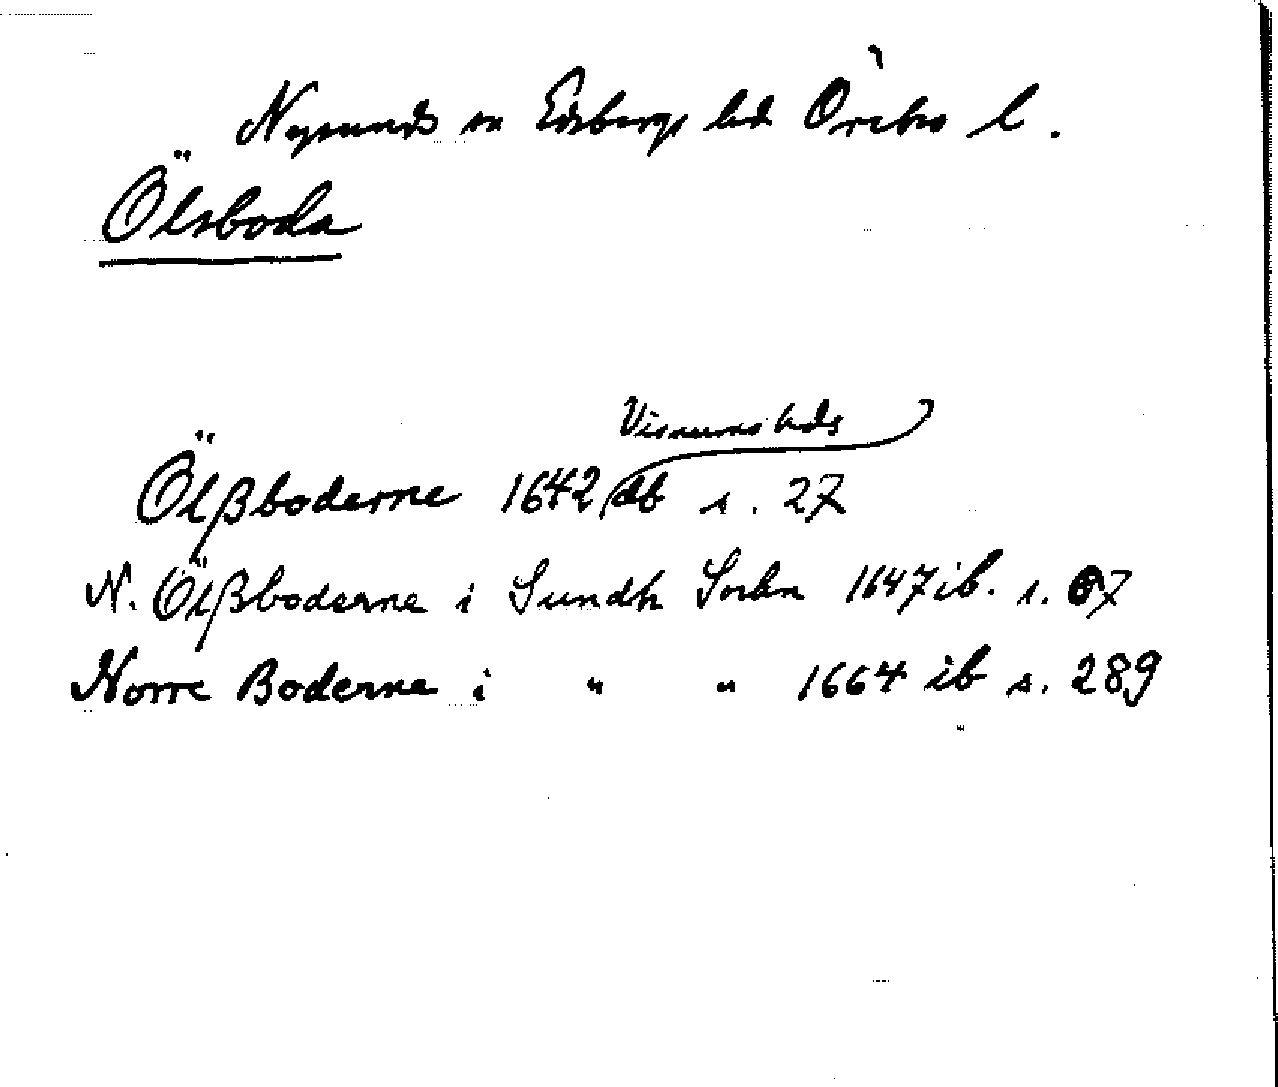 Nysunds sn Edsbergs hd Örebro l.
Ölsboda
Visnums hds
Ölßboderne 1642 db s. 27
N. Ölßboderne i Sundh Sockn 1647 ib. s. 67
Norre Boderne i " " 1664 ib s. 289